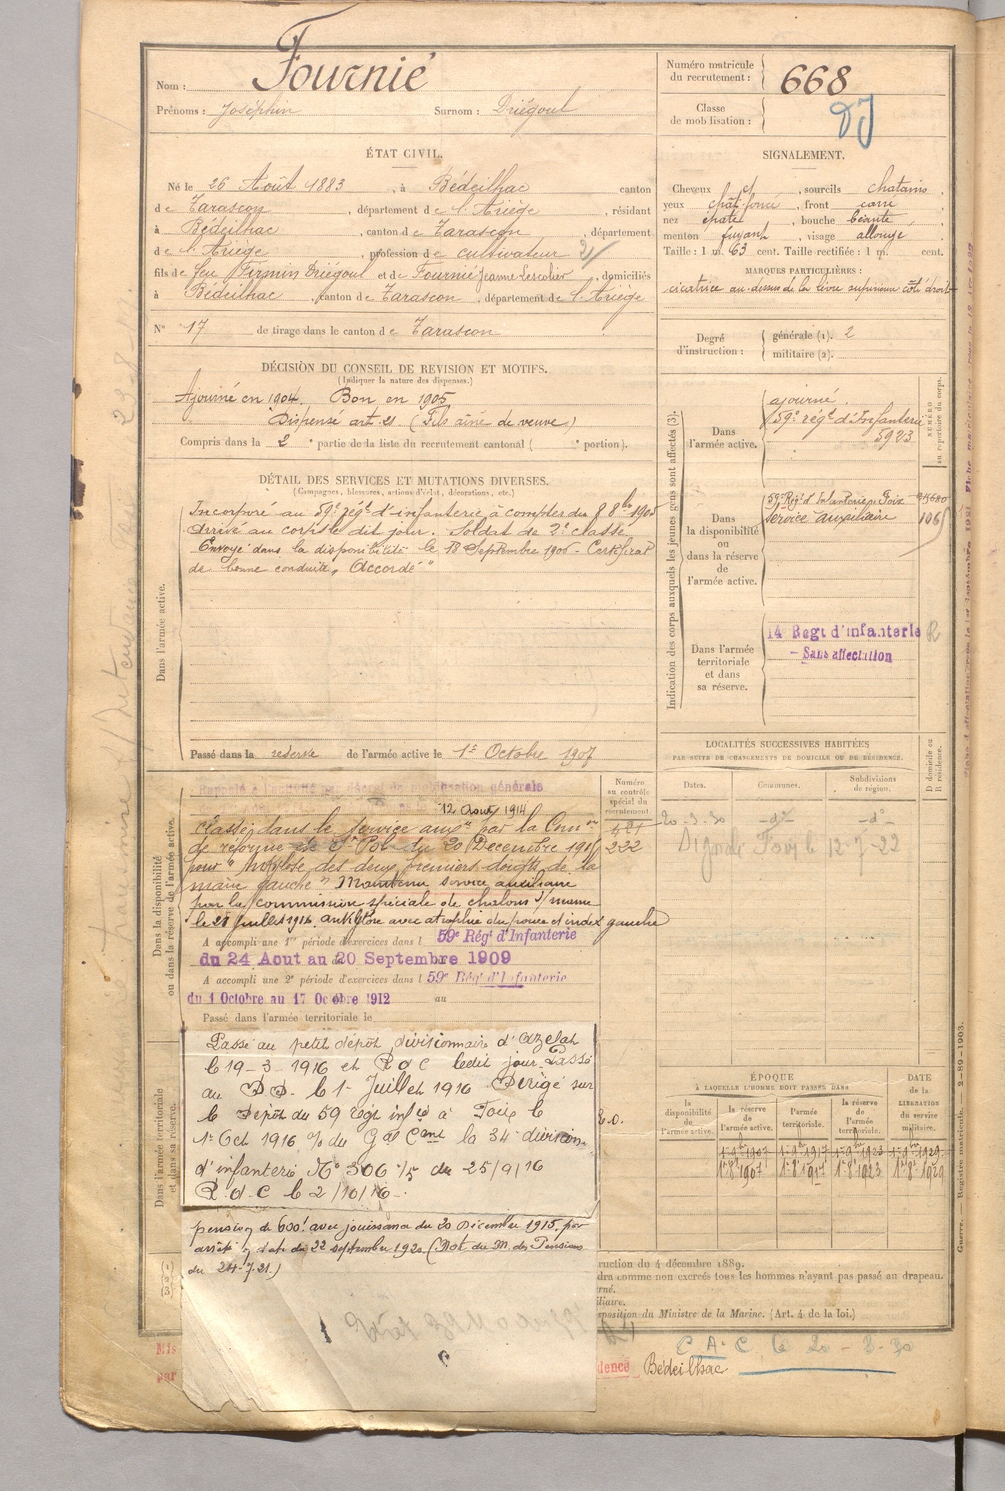 Nom : Fournié
Prénoms : Joséphin Surnom : Driégoul
Numéro matricule du recrutement : 668
Classe de mobilisation :
ÉTAT CIVIL.
Né le 26 Août 1883, à Bédeilhac canton
de Tarascon, département de l'Ariège, résidant
à Bédeilhac, canton de Tarascon, département
de l'Ariège, profession de cultivateur 21
fils de feu Firmin Driégoul et de Fournié Jeanne, domiciliés
à Bédeilhac, canton de Tarascon, département de l'Ariège
N° 17 de tirage dans le canton de Tarascon
SIGNALEMENT.
Cheveux et, sourcils chatains
yeux chât. foncé, front carré
nez épaté, bouche béante,
menton fuyant, visage allongé
Taille : 1 m. 63 cent. Taille rectifiée : 1 m. cent.
MARQUES PARTICULIÈRES :
cicatrice au-dessus de la lèvre supérieure côté droit
Degré d'instruction : générale (1). 2
militaire (2).
DÉCISION DU CONSEIL DE REVISION ET MOTIFS.
(Indiquer la nature des dispenses.)
Ajourné en 1904. Bon en 1905
Dispensé art. 21 (Fils aîné de veuve)
Compris dans la 2e partie de la liste du recrutement cantonal ( e portion).
DÉTAIL DES SERVICES ET MUTATIONS DIVERSES.
(Campagnes, blessures, actions d'éclat, décorations, etc.)
Dans l'armée active.
Incorporé au 59e régt d'infanterie à compter du 8 8bre 1905
Arrivé au corps le dit jour. Soldat de 2e classe
Envoyé dans la disponibilité le 18 Septembre 1906 - Certificat
de bonne conduite " Accordé "
Passé dans la réserve de l'armée active le 1er Octobre 1907
Indication des corps auxquels les jeunes gens sont affectés (3).
NUMÉRO au répertoire du corps.
Dans l'armée active.
ajourné.
59e régt d'Infanterie
5923
Dans la disponibilité ou dans la réserve de l'armée active.
59e Régt d'Infanterie Foix
service auxiliaire
Dans l'armée territoriale et dans sa réserve.
14 Regt d'infanterie
- Sans affectation
LOCALITÉS SUCCESSIVES HABITÉES
PAR SUITE DE CHANGEMENTS DE DOMICILE OU DE RÉSIDENCE.
Dates. Communes. Subdivisions de région. D domicile ou R résidence.
20-3-30 -do- -do-
Dans la disponibilité ou dans la réserve de l'armée active.
Rappelé à l'activité par décret de mobilisation générale
12 Août 1914
Numéro au contrôle spécial du recrutement
222
classé dans le service auxre par la Comon
de réforme de St Pol du 20 Décembre 1915
pour " ankylose des deux premiers doigts de la
main gauche " Maintenu service auxiliaire
par la commission spéciale de chalons s/ marne
le 28 juillet 1916. ankylose avec atrophie du pouce et index gauche
A accompli une 1re période d'exercices dans l 59e Régt d'Infanterie
du 24 Aout au 20 Septembre 1909
A accompli une 2e période d'exercices dans l 59e Régt d'Infanterie
du 1 Octobre au 17 Octobre 1912 au
Passé dans l'armée territoriale le
Dans l'armée territoriale et dans sa réserve.
Passé au petit dépôt divisionnaire d'
le 19-3-1916 et R d C ledit jour. Passé
au D D. le 1er Juillet 1916. Dirigé sur
le Dépôt du 59 régt infie à Foix le
1er Oct 1916 % du Gal Cmt la 34e division
d'infanterie N° 306 /5 du 25/9/16
R d C le 2/10/16.
pension de 600f avec jouissance du 20 Décembre 1915, par
arrêté, date du 22 septembre 1920 (Not. du M. des Pensions
du 24-7-21.)
ÉPOQUE
À LAQUELLE L'HOMME DOIT PASSER DANS
la disponibilité de l'armée active. la réserve de l'armée active. l'armée territoriale. la réserve de l'armée territoriale. DATE de la LIBÉRATION du service militaire.
1er 9bre 1907 1er 9bre 1917 1er 9bre 1923 1er 9bre 1929
1er 8bre 1907 1er 8bre 1917 1er 8bre 1923 1er 8bre 1929
ruction du 4 décembre 1889.
dra comme non exercés tous les hommes n'ayant pas passé au drapeau.
rné.
iliaire.
sposition du Ministre de la Marine. (Art. 4 de la loi.)
C A C le 20-3-30
dence Bédeilhac
Guerre. — Registre matricule. — 2-89-1903.